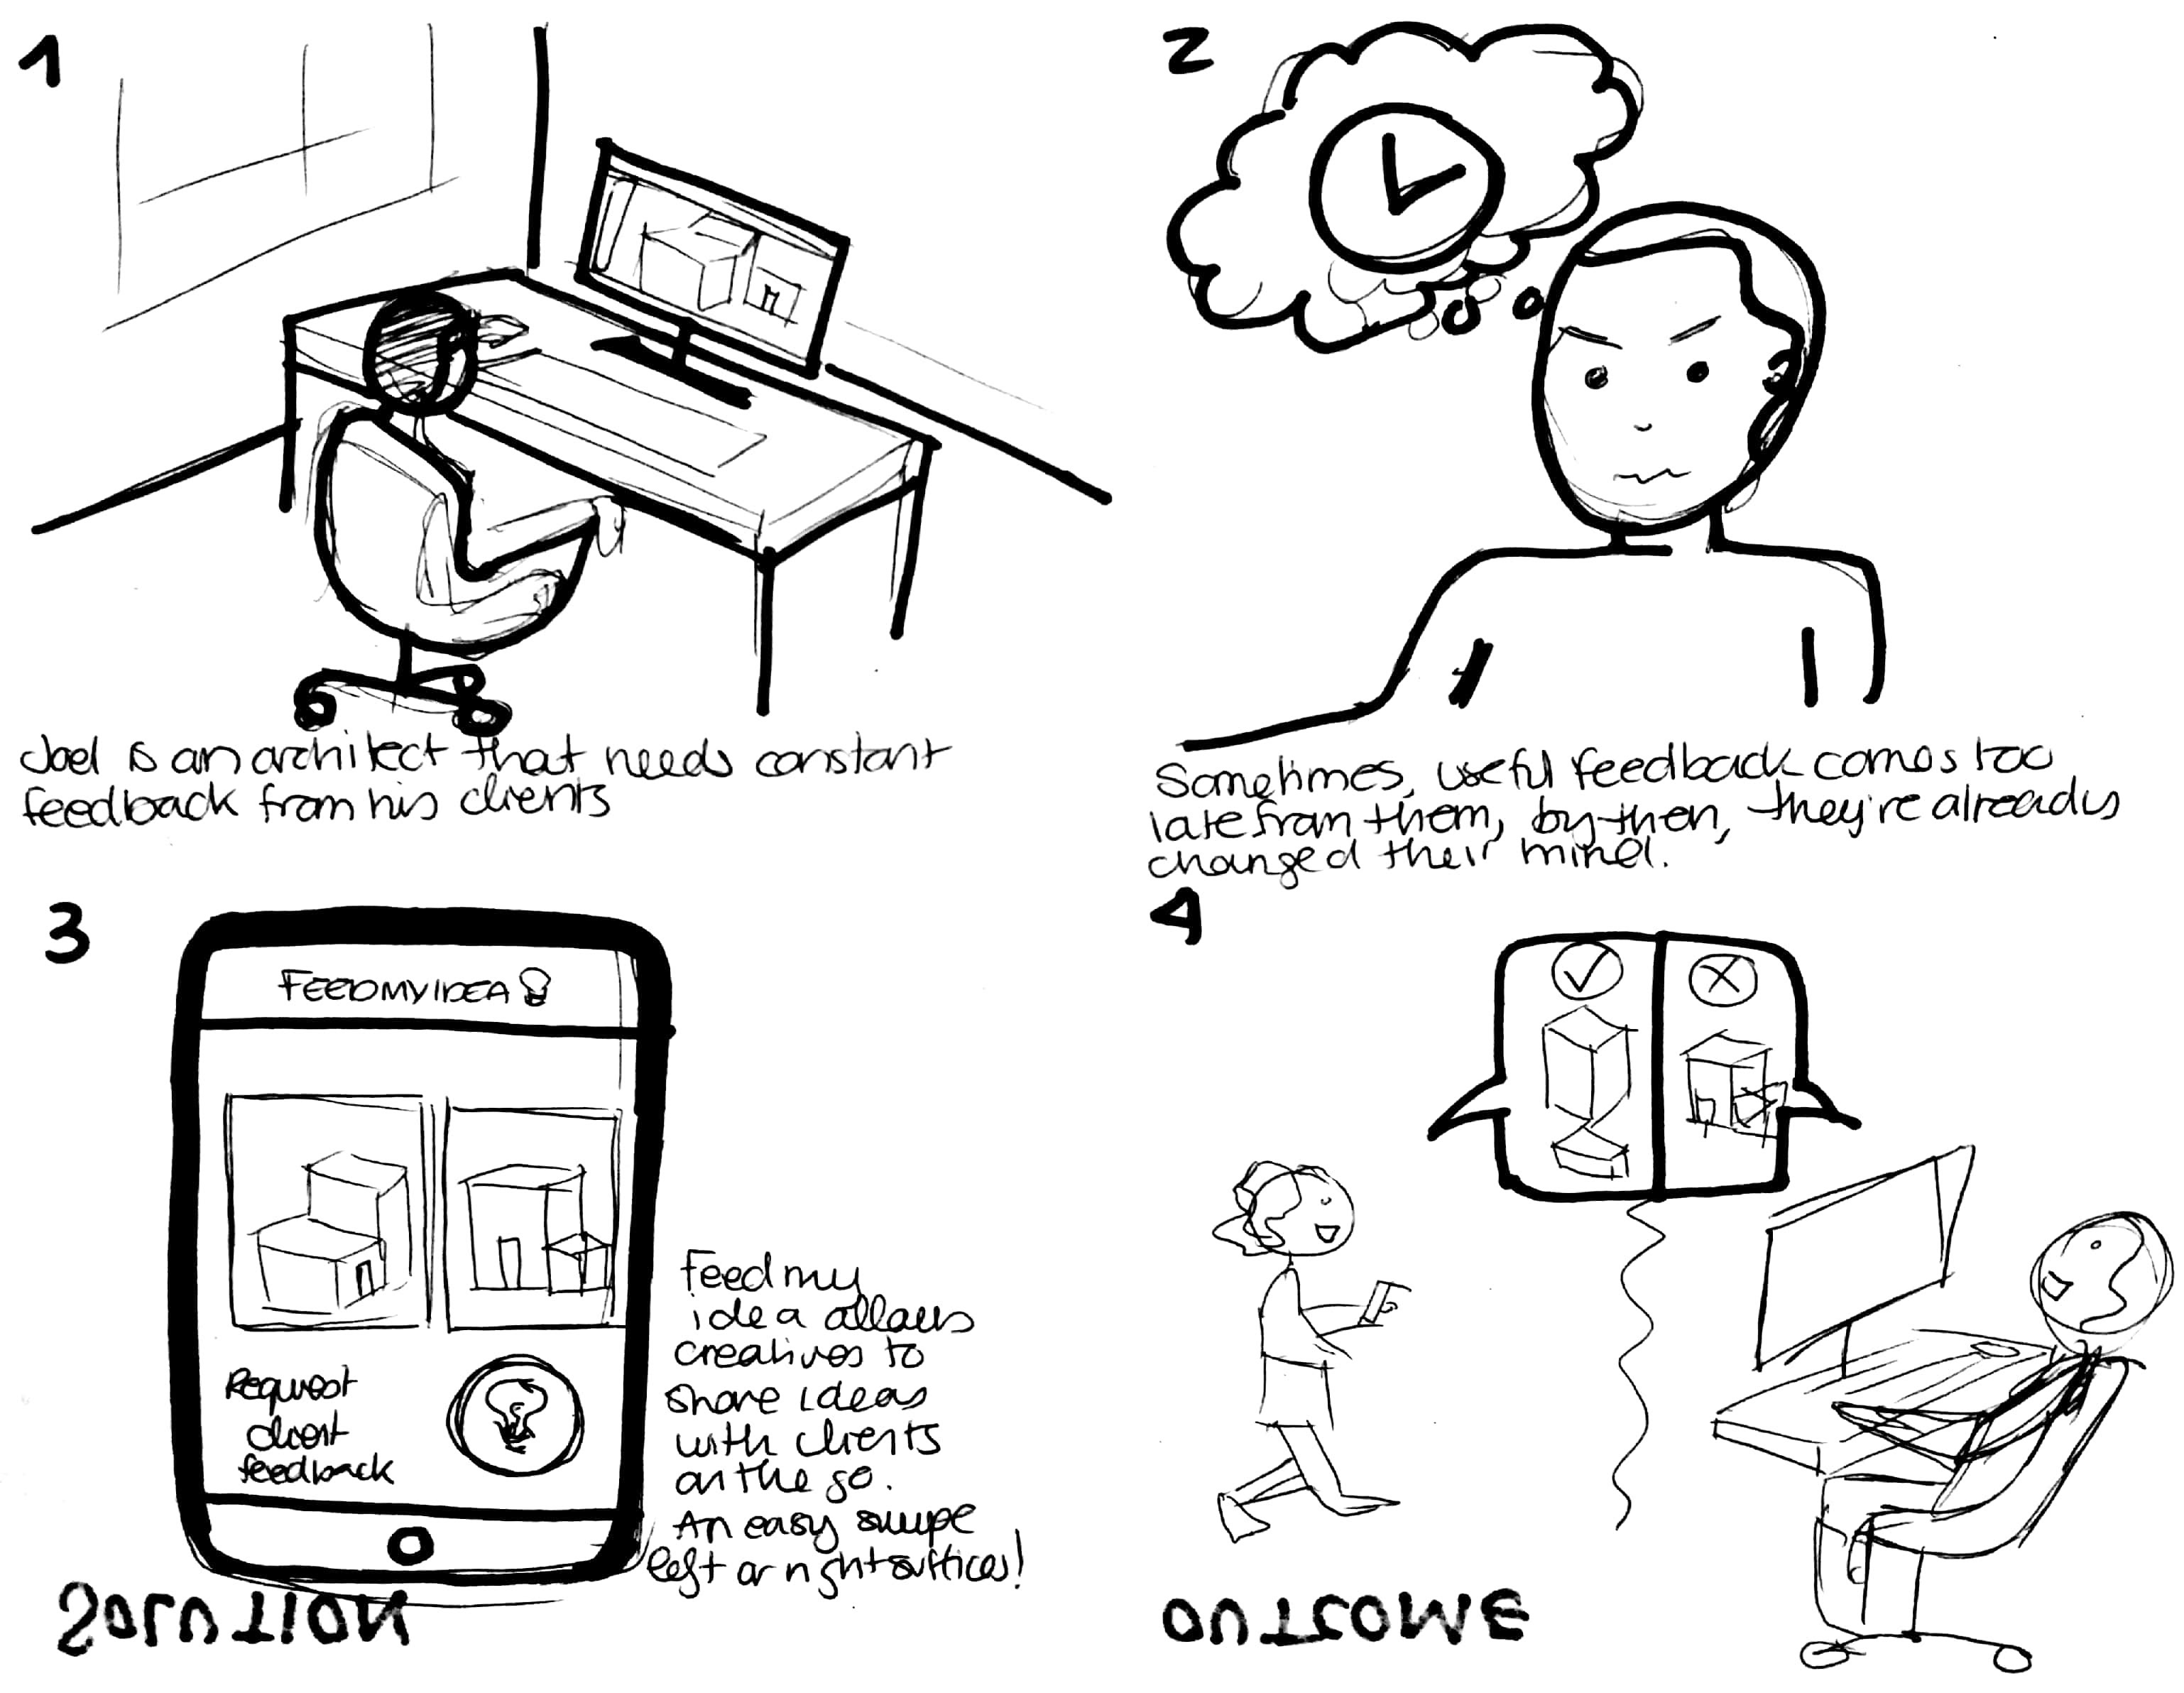 1
Joel is an architect that needs constant
feedback from his clients
2
Sometimes, useful feedback comes too
late from them, by then, they're already
changed their mind.
3
FEEDMYIDEA
Request
client
feedback
Feed my
idea allows
creatives to
share ideas
with clients
on the go.
An easy swipe
left or right suffices!
SOLUTION
4
OUTCOME